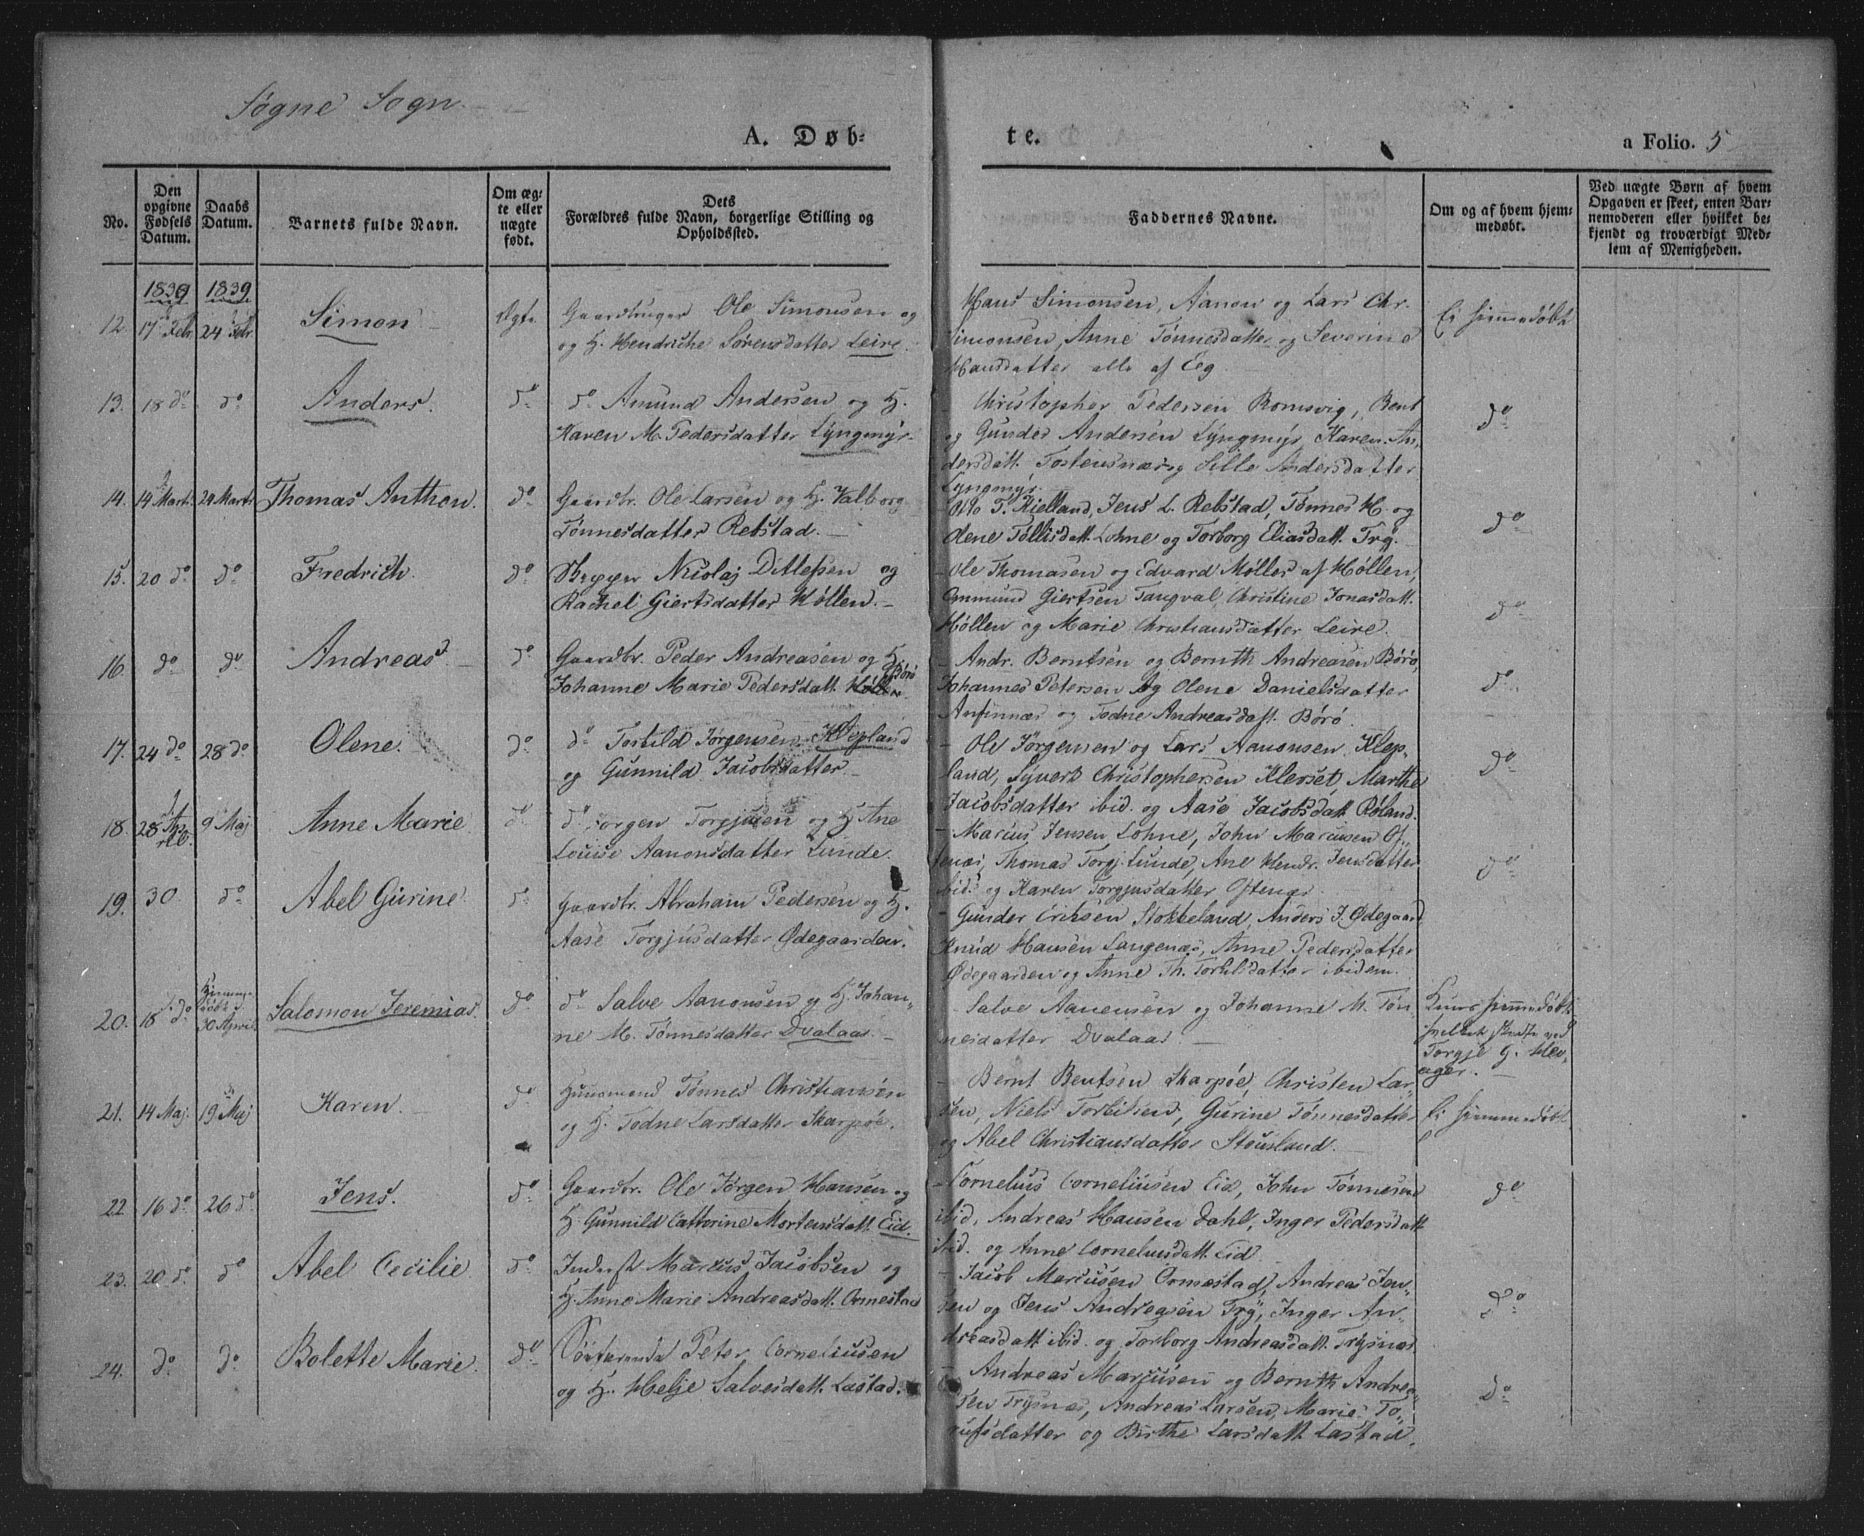 Søgne Sogn
A. Døb-
te.
a Folio. 5
No.
Den opgivne Fødsels Datum.
Daabs Datum.
Barnets fulde Navn.
Om ægte eller nægte født.
Dets Forældres fulde Navn, borgerlige Stilling og Opholdssted.
Faddernes Navne.
Om og af hvem hjemmedøbt.
Ved nægte Børn af hvem Opgaven er skeet, enten Barnemoderen eller hvilket bekjendt og troværdigt Medlem af Menigheden.
1839 1839
12. 17 Febr. 24 Febr. Simon Ægte Gaardbruger Ole Simonsen og
og H. Hendriche Sørensdatter Leire.
Hans Simonsen, Aanon og Lars Chr.
Simonsen, Anne Tønnesdatter og Severine
Hansdatter alle af Eeg
Ei hjemmedøbt
13. 18 do do Anders. do do Amund Andersen og H.
Karen M. Pedersdatter Lÿngmÿr
Christopher Pedersen Romsvig, Bent
og Gunder Andersen Lÿngmÿr Karen An-
dersdatt. Tostensnæs og Sille Andersdatter
Lyngmÿr.
do
14. 14 Mart. 24 Mart. Thomas Anthon. do Gaardbr. Ole Larsen og H. Valborg
Tønnesdatter Rebstad.
Otto T. Kielland, Jens L. Rebstad, Tønnes H. og
Olene Tøllisdatt. Lohne og Torborg Eliasdatt. Trÿ.
do
15. 20 do do Fredrich. do Nicolaj Ditlefsen og
Rachel Giertsdatter Høllen.
Ole Thomasen og Edvard Møller af Høllen,
Ommund Giertsen Tangval, Christine Jonasdatt.
Høllen og Marie Christiansdatter Leire.
do
16. do do Andreas. do Gaardbr. Peder Andreasen og H.
Johanne Marie Pedersdatt. Børø
Andr. Berntsen og Bernth Andreasen Børø,
Johannes Petersen og Olene Danielsdatter
og Todne Andreasdatt. Børø.
do
17. 24 do 28 do Olene. do do Torkild Jørgensen Klepland
og Gunnild Jacobsdatter.
Ole Jörgensen og Lars Aanonsen Klep-
land, Syvert Christophersen Kleveset, Marthe
Jacobsdatter ibid. og Aase Jacobsdatt. Røland.
do
18. 28 9 Maj Anne Marie do do Jørgen Torgjusen og H. Ane
Louise Aanonsdatter Lunde.
Marcus Jensen Lohne, John Marcusen Of-
tenæs, Thomas Torgj. Lunde, Ane Hendr. Jensdatter
ibid. og Karen Torgjusdatter Oftenæs
do
19. 30 do Abel Gurine do Gaardbr. Abraham Pedersen og H.
Aase Torgjusdatter Ødegaarden.
Gunder Eriksen Stokkeland, Anders J. Ødegaard
Knud Hansen Langenæs, Anne Pedersdatter
Ødegaarden og Anne Th. Torkildsdatter ibidem.
20. 18 do 30 April Salomon Jeremias do do Salve Aanonsen og H. Johan-
ne M. Tønnesdatter Dvalaas.
Salve Aanensen og Johanne M. Tøn
nesdatter Dvalaas
Kuns hjemmedøbt
hvilket skedte ved
Torgje G. Hev-
ager.
21. 14 Maj. 19 Maj Karen. do Huusmand Tønnes Christiansen
og H. Todne Larsdatter Skarpøe.
Bernt Bentsen Skarpøe, Christen Lar-
sen, Niels Torkilsen, Gurine Tønnesdatter
og Abel Christiansdatter Stousland.
Ei hjemmedøbt
22 16 do 26 do Jens. do Gaardbr. Ole Jørgen Hansen og
H. Gunnild Catterine Mortensdatt. Eid.
Cornelius Corneliusen Eid, John Tønnesen
ibid, Andreas Hansen Dahl, Inger Pedersdatt
ibid. og Anne Corneliusdatt. Eid
do
23. 20 do do Abel Cecilie do Inderst Marcus Jacobsen og
H. Anne Marie Andreasdatt. Ormestad
Jacob Marcusen Ormestad, Andreas Jen-
sen og Jens Andreasen Trÿ, Inger An-
dreasdatt ibid. og Torborg Andreasdatt. Trysnæs
do
24. do do Bolette Marie. do Søefarende Peter Corneliusen
og H. Helje Salvesdatt. Lastad.
Andreas Marcusen og Bernth Andrea-
sen Trysnæs, Andreas Larsen, Marie To-
rufsdatter og Birthe Larsdatt. Lastad.
do